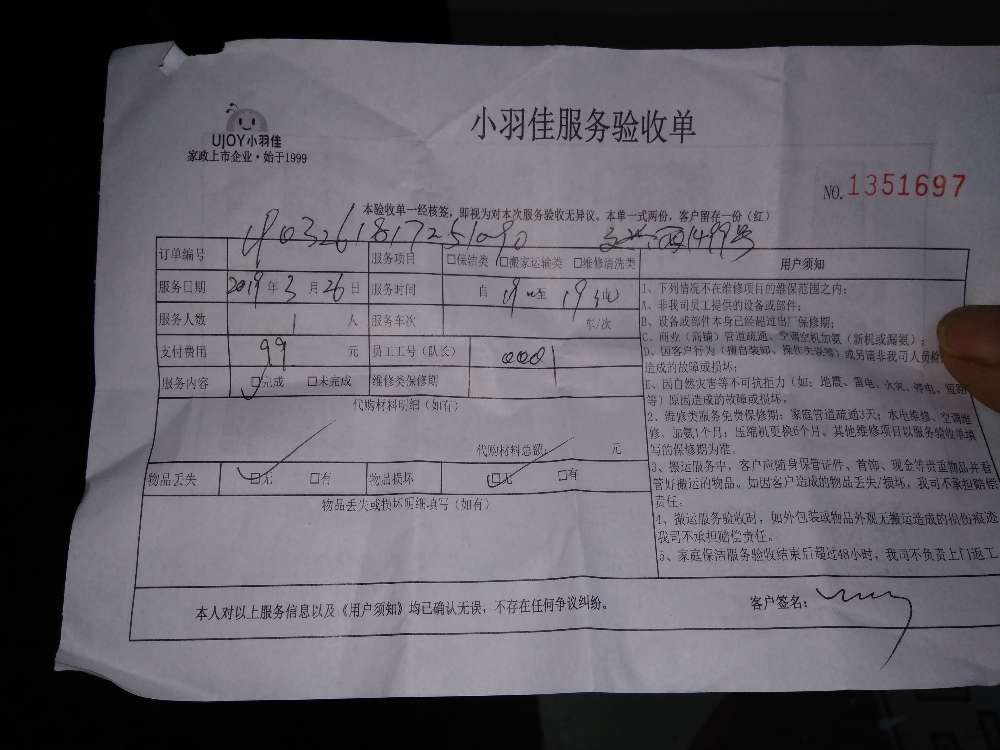 UJOY小羽佳
家政上市企业·始于1999
小羽佳服务验收单
NO.1351697
本验收单一经核签,即视为对本次服务验收无异议。本单一式两份,客户留存一份(红)
订单编号 1903261817251090 服务项目 □保洁类 □搬家运输类 □维修清洗类
服务日期 2019年3月26日 服务时间 自 19 至 19
服务人数 1 人 服务车次 车/次
支付费用 99 元 员工工号(队长) 0001
服务内容 □完成 □未完成 维修类保修期
代购材料明细(如有)
代购材料总额: 元
物品丢失 □无 □有 物品损坏 □无 □有
物品丢失或损坏明细填写(如有)
用户须知
1、下列情况不在维修项目的维保范围之内:
A、非我司员工提供的设备或部件;
B、设备或部件本身已经超过出厂保修期;
C、商业(商铺)管道疏通、空调空机加氨(新机或漏氨);
D、因客户行为(擅自装卸、操作失误等)或另请非我司人员
造成的故障或损坏;
E、因自然灾害等不可抗拒力(如:地震、雷电、火灾、停电、短路
等)原因造成的故障或损坏。
2、维修类服务免费保修期:家庭管道疏通3天;水电维修、空调维
修、加氨1个月;压缩机更换6个月。其他维修项目以服务验收单填
写的保修期为准。
3、搬运服务中,客户应随身保管证件、首饰、现金等贵重物品并看
管好搬运的物品。如因客户造成的物品丢失/损坏,我司不承担赔偿
责任。
4、搬运服务验收时,如外包装或物品外观无搬运造成的损伤痕迹
我司不承担赔偿责任。
5、家庭保洁服务验收结束后超过48小时,我司不负责上门返工
本人对以上服务信息以及《用户须知》均已确认无误,不存在任何争议纠纷。
客户签名: